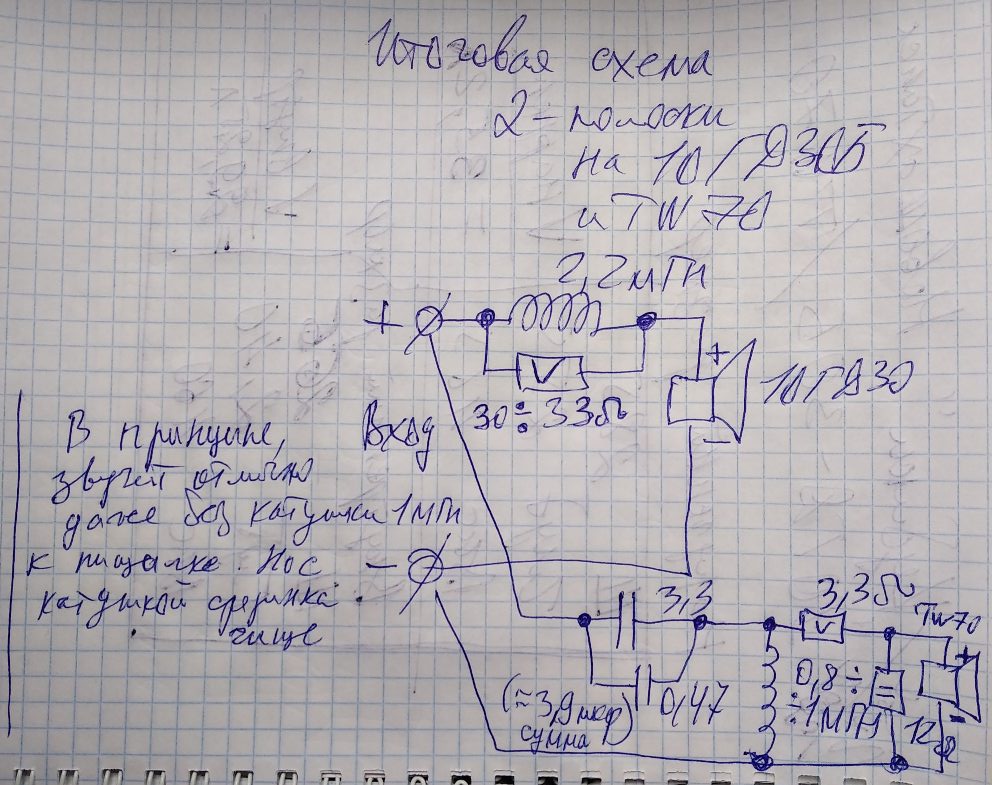 Итоговая схема
2-полоски
на 10ГД30Б
и TW 70
2,2мГн
+
V
+
10ГД30
30÷33Ω
−
Вход
В принципе,
звучит отлично
даже без катушки 1мГн
к пищалке. Но с
катушкой серединка
чище
−
3,3
3,3Ω
TW70
V
+
0,8÷
÷1мГн
0,47
(≈3,9мкф)
сумма
12Ω
−